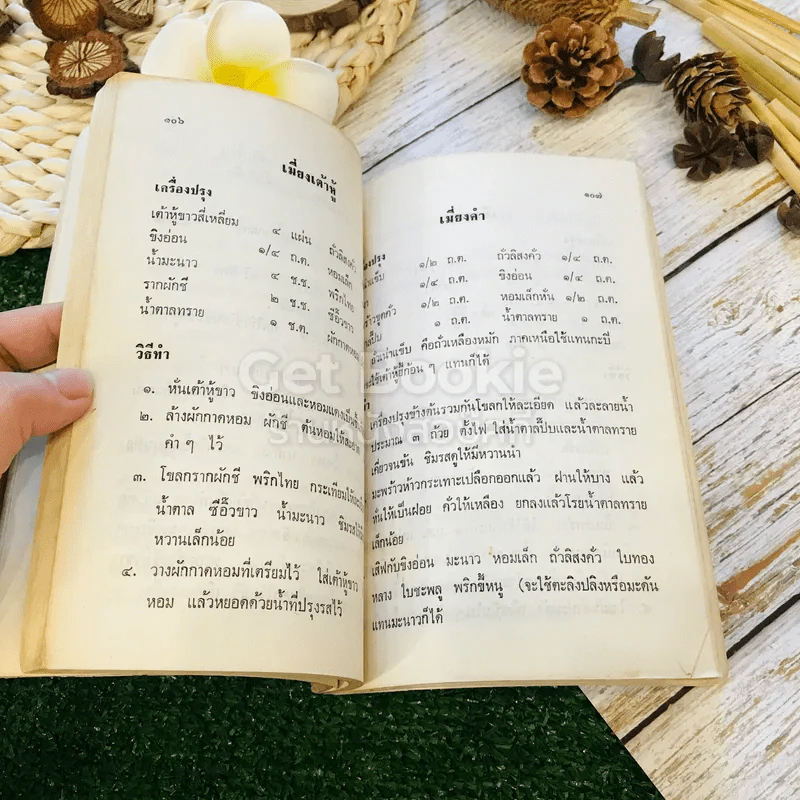 ๑๐๖
เมี่ยงเต้าหู้
เครื่องปรุง
เต้าหู้ขาวสี่เหลี่ยม ๔ แผ่น ถั่วลิสงคั่ว
ขิงอ่อน ๑/๔ ถ.ต. หอมเล็ก
น้ำมะนาว ๔ ช.ช. พริกไทย
รากผักชี ๒ ช.ช. ซีอิ๊วขาว
น้ำตาลทราย ๑ ช.ต. ผักกาดหอม
วิธีทำ
๑. หั่นเต้าหู้ขาว ขิงอ่อนและหอมแดงเป็นชิ้น
๒. ล้างผักกาดหอม ผักชี ต้นหอมให้สะอาด
คำ ๆ ไว้
๓. โขลกรากผักชี พริกไทย กระเทียมให้
น้ำตาล ซีอิ๊วขาว น้ำมะนาว ชิมรสให้
หวานเล็กน้อย
๔. วางผักกาดหอมที่เตรียมไว้ ใส่เต้าหู้ขาว
หอม แล้วหยอดด้วยน้ำที่ปรุงรสไว้
๑๐๗
เมี่ยงคำ
ปรุง
น่าแข็บ ๑/๒ ถ.ต. ถั่วลิสงคั่ว ๑/๔ ถ.ต.
๑/๔ ถ.ต. ขิงอ่อน ๑/๔ ถ.ต.
ขูดคั่ว ๑/๒ ถ.ต. หอมเล็กหั่น ๑/๒ ถ.ต.
ปี๊บ ๑ ถ.ต. น้ำตาลทราย ๑ ถ.ต.
ถั่วเน่าแข็บ คือถั่วเหลืองหมัก ภาคเหนือใช้แทนกะปิ
ใช้เต้าหู้ยี้ก้อน ๆ แทนก็ได้
เครื่องปรุงข้างต้นรวมกันโขลกให้ละเอียด แล้วละลายน้ำ
ประมาณ ๓ ถ้วย ตั้งไฟ ใส่น้ำตาลปี๊บและน้ำตาลทราย
เคี่ยวจนข้น ชิมรสดูให้มีหวานนำ
มะพร้าวห้าวกระเทาะเปลือกออกแล้ว ฝานให้บาง แล้ว
หั่นให้เป็นฝอย คั่วให้เหลือง ยกลงแล้วโรยน้ำตาลทราย
เล็กน้อย
เสิฟกับขิงอ่อน มะนาว หอมเล็ก ถั่วลิสงคั่ว ใบทอง
หลาง ใบชะพลู พริกขี้หนู (จะใช้ตะลิงปลิงหรือมะดัน
แทนมะนาวก็ได้
Get Bookie